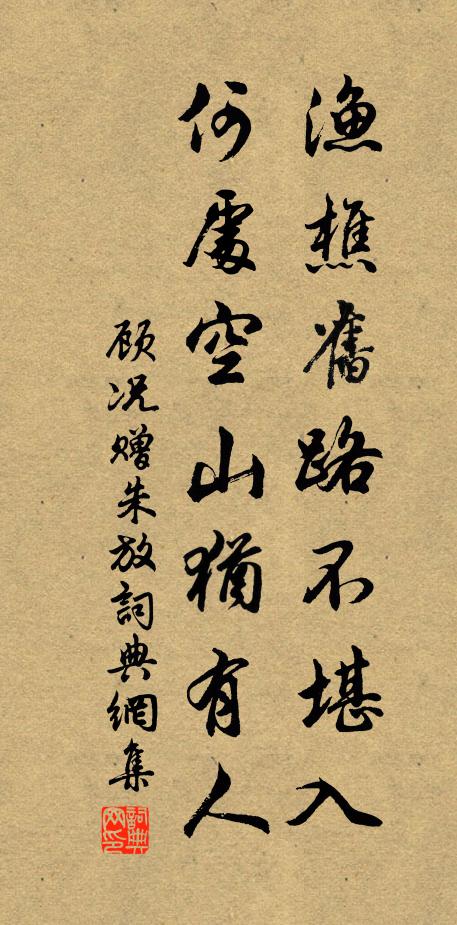 漁樵舊路不堪入
何處空山猶有人
顾况赠朱放詞典網集
詞典网印